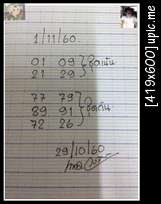 1/11/60
01 09 } ชุดเน้น
21 29
77 79
89 91 } ชุดกัน
72 26
29/10/60
[419x600]upic.me